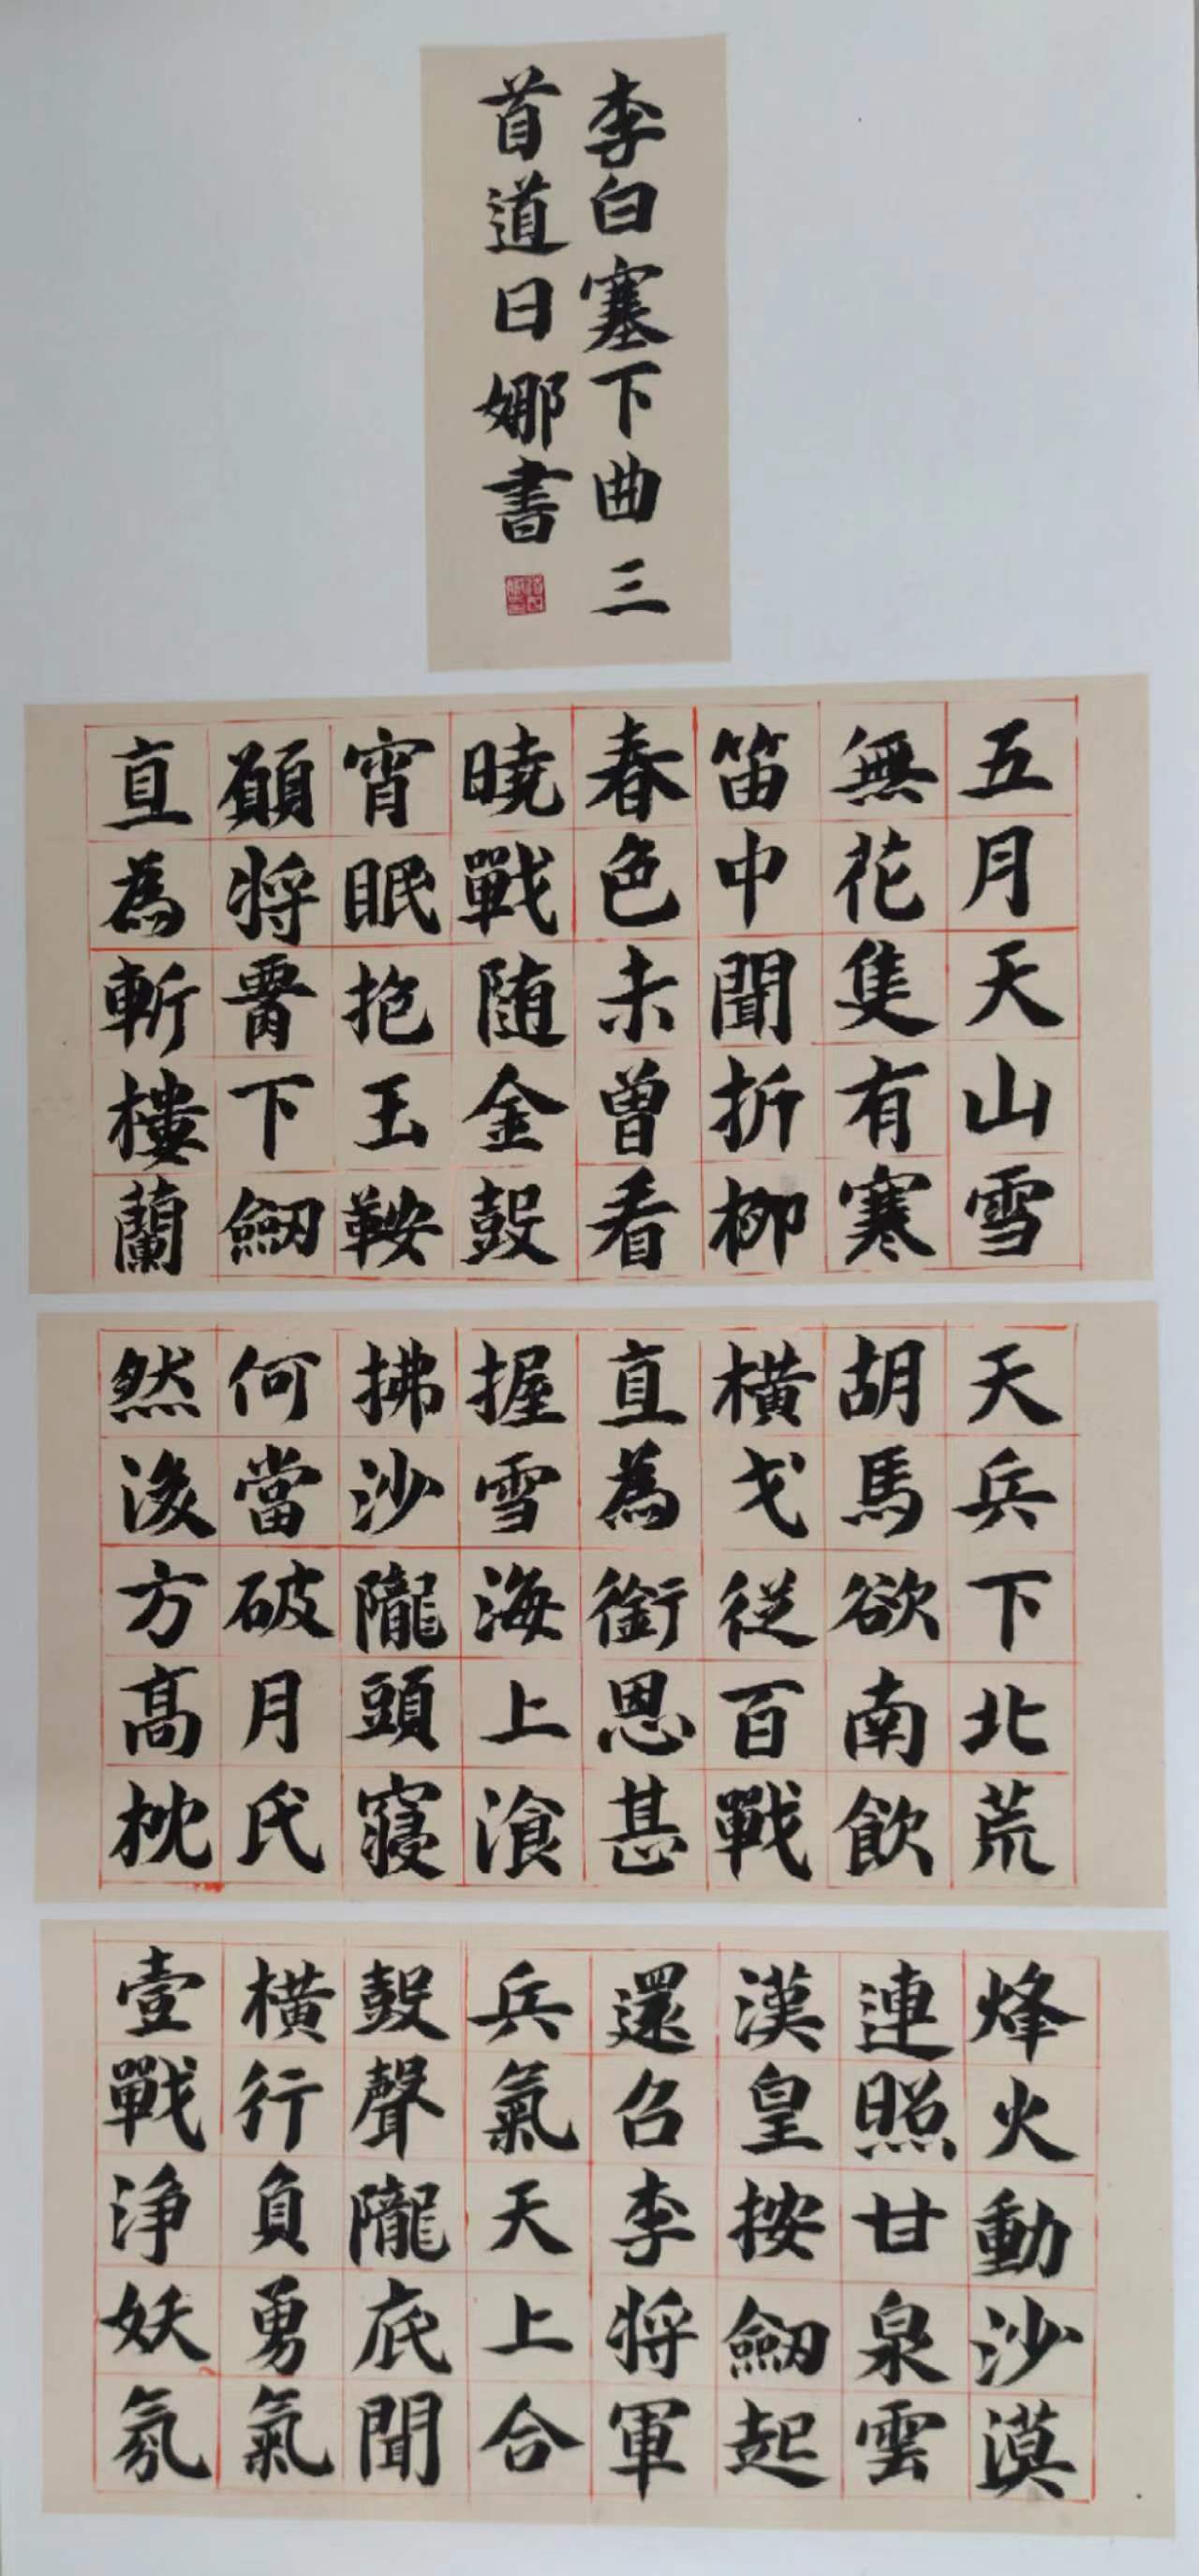 李白塞下曲三
首道日娜書
五月天山雪
無花隻有寒
笛中聞折柳
春色未曾看
曉戰随金鼓
宵眠抱玉鞍
願將腰下劒
直為斬樓蘭
天兵下北荒
胡馬欲南飲
橫戈從百戰
直為銜恩甚
握雪海上飡
拂沙隴頭寢
何當破月氏
然後方高枕
烽火動沙漠
連照甘泉雲
漢皇按劒起
還召李將軍
兵氣天上合
鼓聲隴底聞
橫行負勇氣
壹戰淨妖氛